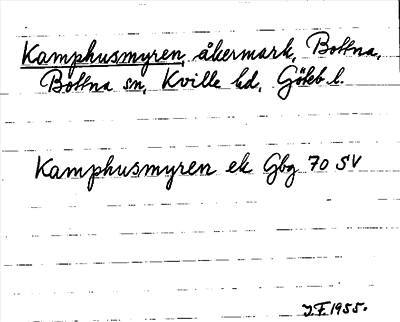 Kamphusmyren, åkermark, Bottna,
Bottna sn, Kville hd, Göteb l.
Kamphusmyren ek Gbg 70 SV
J.F. 1955.